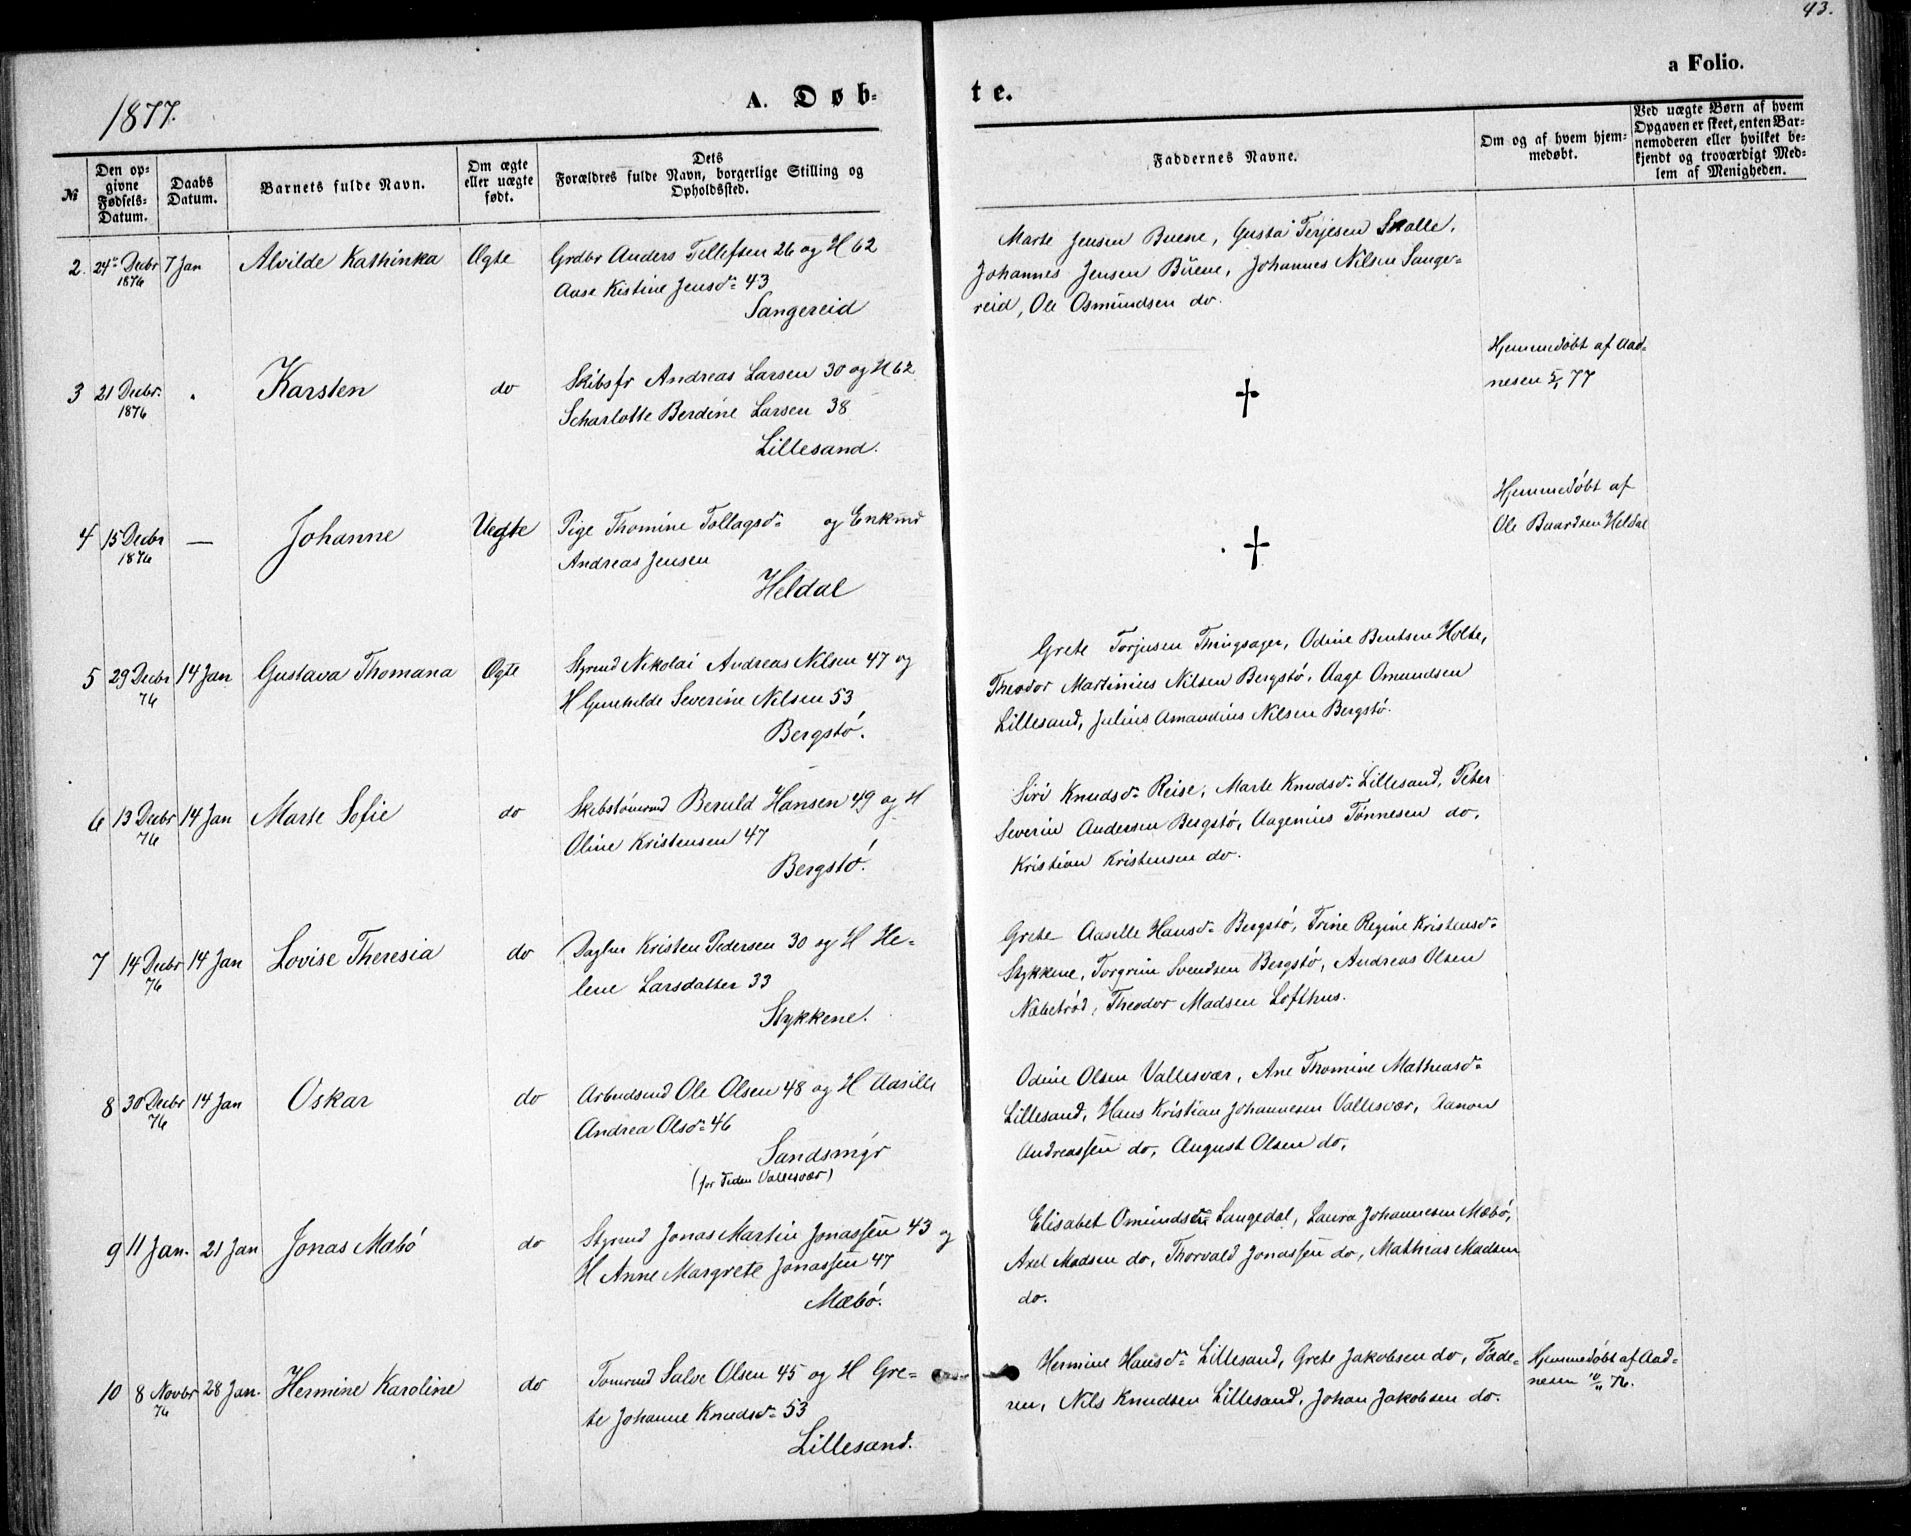 43.
a Folio.
1877.
A. Døb-
te.
№
Den op-
givne
Fødsels-
Datum.
Daabs
Datum.
Barnets fulde Navn.
Om ægte
eller uægte
født.
Dets
Forældres fulde Navn, borgerlige Stilling og
Opholdssted.
Faddernes Navne.
Om og af hvem hjem-
medøbt.
Ved uægte Børn af hvem
Opgaven er skeet, enten Bar-
nemoderen eller hvilket be-
kjendt og troværdigt Med-
lem af Menigheden.
2. 24de Decbr 1876 7 Jan Alvilde Kathinka Ægte Grdbr Anders Tellefsen 26 og H 62
Aase Kistine Jensd: 43
Sangereid
Marte Jensen Buene, Gusta Terjesen Skalle,
Johannes Jensen Buene, Johannes Nilsen Sange-
reid, Ole Osmundsen do.
3 21 Decbr. 1876 Karsten do Skibsfr Andreas Larsen 30 og H 62
Scharlotte Berdine Larsen 38
Lillesand.
†
Hjemmedøbt af Aad-
nesen 5/1 77
4 15 Decbr 1876 — Johanne Uegte Pige Thomine Tollagsd: og Enkmd
Andreas Jensen
Heldal
†
Hjemmedøbt af
Ole Baardsen Heldal
5 29 Decbr 76 14 Jan Gustava Thomana Ægte Styrmd Nikolai Andreas Nilsen 47 og
H Gunehilde Severine Nilsen 53
Bergstø.
Grete Torjusen Thingsager, Odine Bentsen Holte,
Theodor Martinius Nilsen Bergstø, Aage Omundsen
Lillesand, Julius Amandius Nilsen Bergstø.
6 13 Decbr 76 14 Jan Marte Sofie do Skibstømrmd Beruld Hansen 49 og H
Oline Kristensen 47
Bergstø.
Siri Knudsd: Reise, Marte Knudsd: Lillesand, Peter
Severin Andersen Bergstø, Aagenius Tønnesen do,
Kristian Kristensen do.
7 14 Decbr 76 14 Jan Lovise Theresia do Daglnr Kristen Pedersen 30 og H He-
lene Larsdatter 33
Stykkene.
Grete Aaselle Hansd: Bergstø, Trine Regine Kristensd:
Stykkene, Torgrim Svendsen Bergstø, Andreas Olsen
Næbetrød, Theodor Madsen Lofthus.
8 30 Decbr 76 14 Jan Oskar do Arbeidsmd Ole Olsen 48 og H Aasille
Andrea Olsd: 46
Sandsmyr
(for Tiden Vallesvær)
Odine Olsen Vallesvær, Ane Thomine Mathiasd:
Lillesand, Hans Kristian Johannesen Vallesvær, Aanon
Andreassen do, August Olsen do,
9 11 Jan. 21 Jan Jonas Mabø do Styrmd Jonas Martin Jonassen 43 og
H Anne Margrete Jonassen 47
Mæbø.
Elisabet Omundsen Langedal, Laura Johannesen Mæbø,
Axel Madsen do, Thorvald Jonassen do, Mathias Madsen
do.
10 8 Novbr 76 28 Jan. Hermine Karoline do Tømrmd Salve Olsen 45 og H Gre-
te Johanne Knudsd: 53
Lillesand.
Hermine Hansd: Lillesand, Grete Jakobsen do, Fade-
ren, Nils Knudsen Lillesand, Johan Jakobsen do.
Hjemmedøbt af Aad-
nesen 10/11 76.